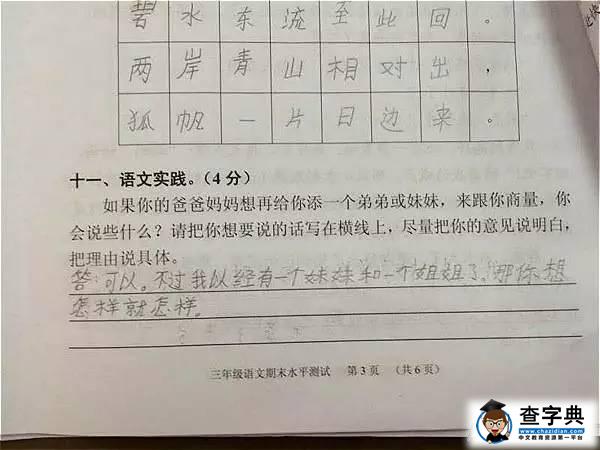 碧水东流至此回。
两岸青山相对出，
狐帆一片日边来。
十一、语文实践。（4分）
如果你的爸爸妈妈想再给你添一个弟弟或妹妹，来跟你商量，你
会说些什么？请把你想要说的话写在横线上，尽量把你的意见说明白，
把理由说具体。
答：可以。不过我以经有一个妹妹和一个姐姐了，那你想
怎样就怎样。
三年级语文期末水平测试 第3页 （共6页）
查字典
www.chazidian.com
中文教育资源第一平台